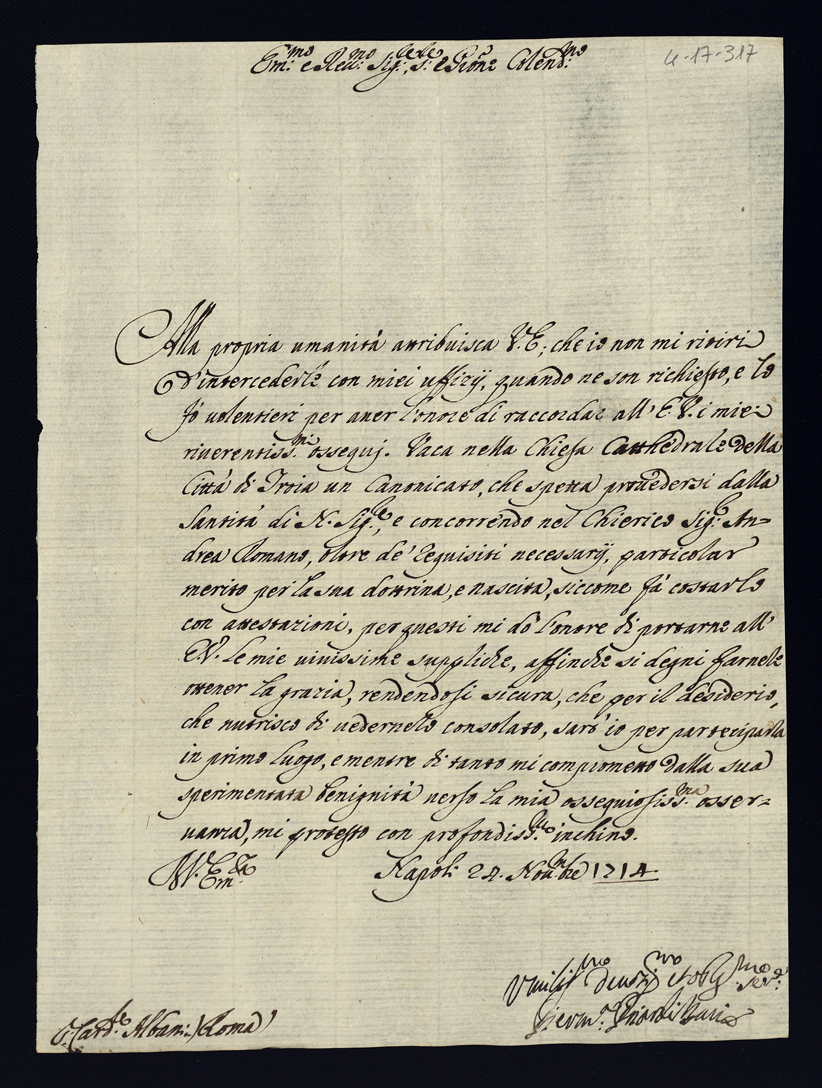 Em:mo e Reu:mo Sig:re, S:re e Pron:e Colend:mo
4-17-317
Alla propria umanità attribuisca V. E; che io non mi ritiri
d'intercederle con miei uffizij, quando ne son richiesto, e lo
fò volentieri per auer l'onore di raccordar all'E.V. i miei
riuerentiss:mi ossequj. Vaca nella Chiesa Catthedrale della
Città di Troia un Canonicato, che spetta prouedersi dalla
Santità di N. Sig:re, e concorrendo nel Chierico Sig:r An=
drea Romano, oltre de' requisiti necessarij, particolar
merito per la sua dottrina, e nascita, siccome fà costarlo
con attestazioni, per questi mi dò l'onore di portarne all'
E.V. le mie viuissime suppliche, affinche si degni farnele
ottener la grazia, rendendosi sicura, che per il desiderio,
che nutrisco di uedernelo consolato, sarò io per participarla
in primo luogo, e mentre di tanto mi comprometto dalla sua
sperimentata benignità verso la mia ossequiosiss:ma osser=
uanza, mi protesto con profondiss:mo inchino.
Di V. Em:za Napoli 24. Nou:mbre 1714
Vmilis:mo Deuot:mo et Obl:mo Ser:e
S: Card:le Albani /Roma